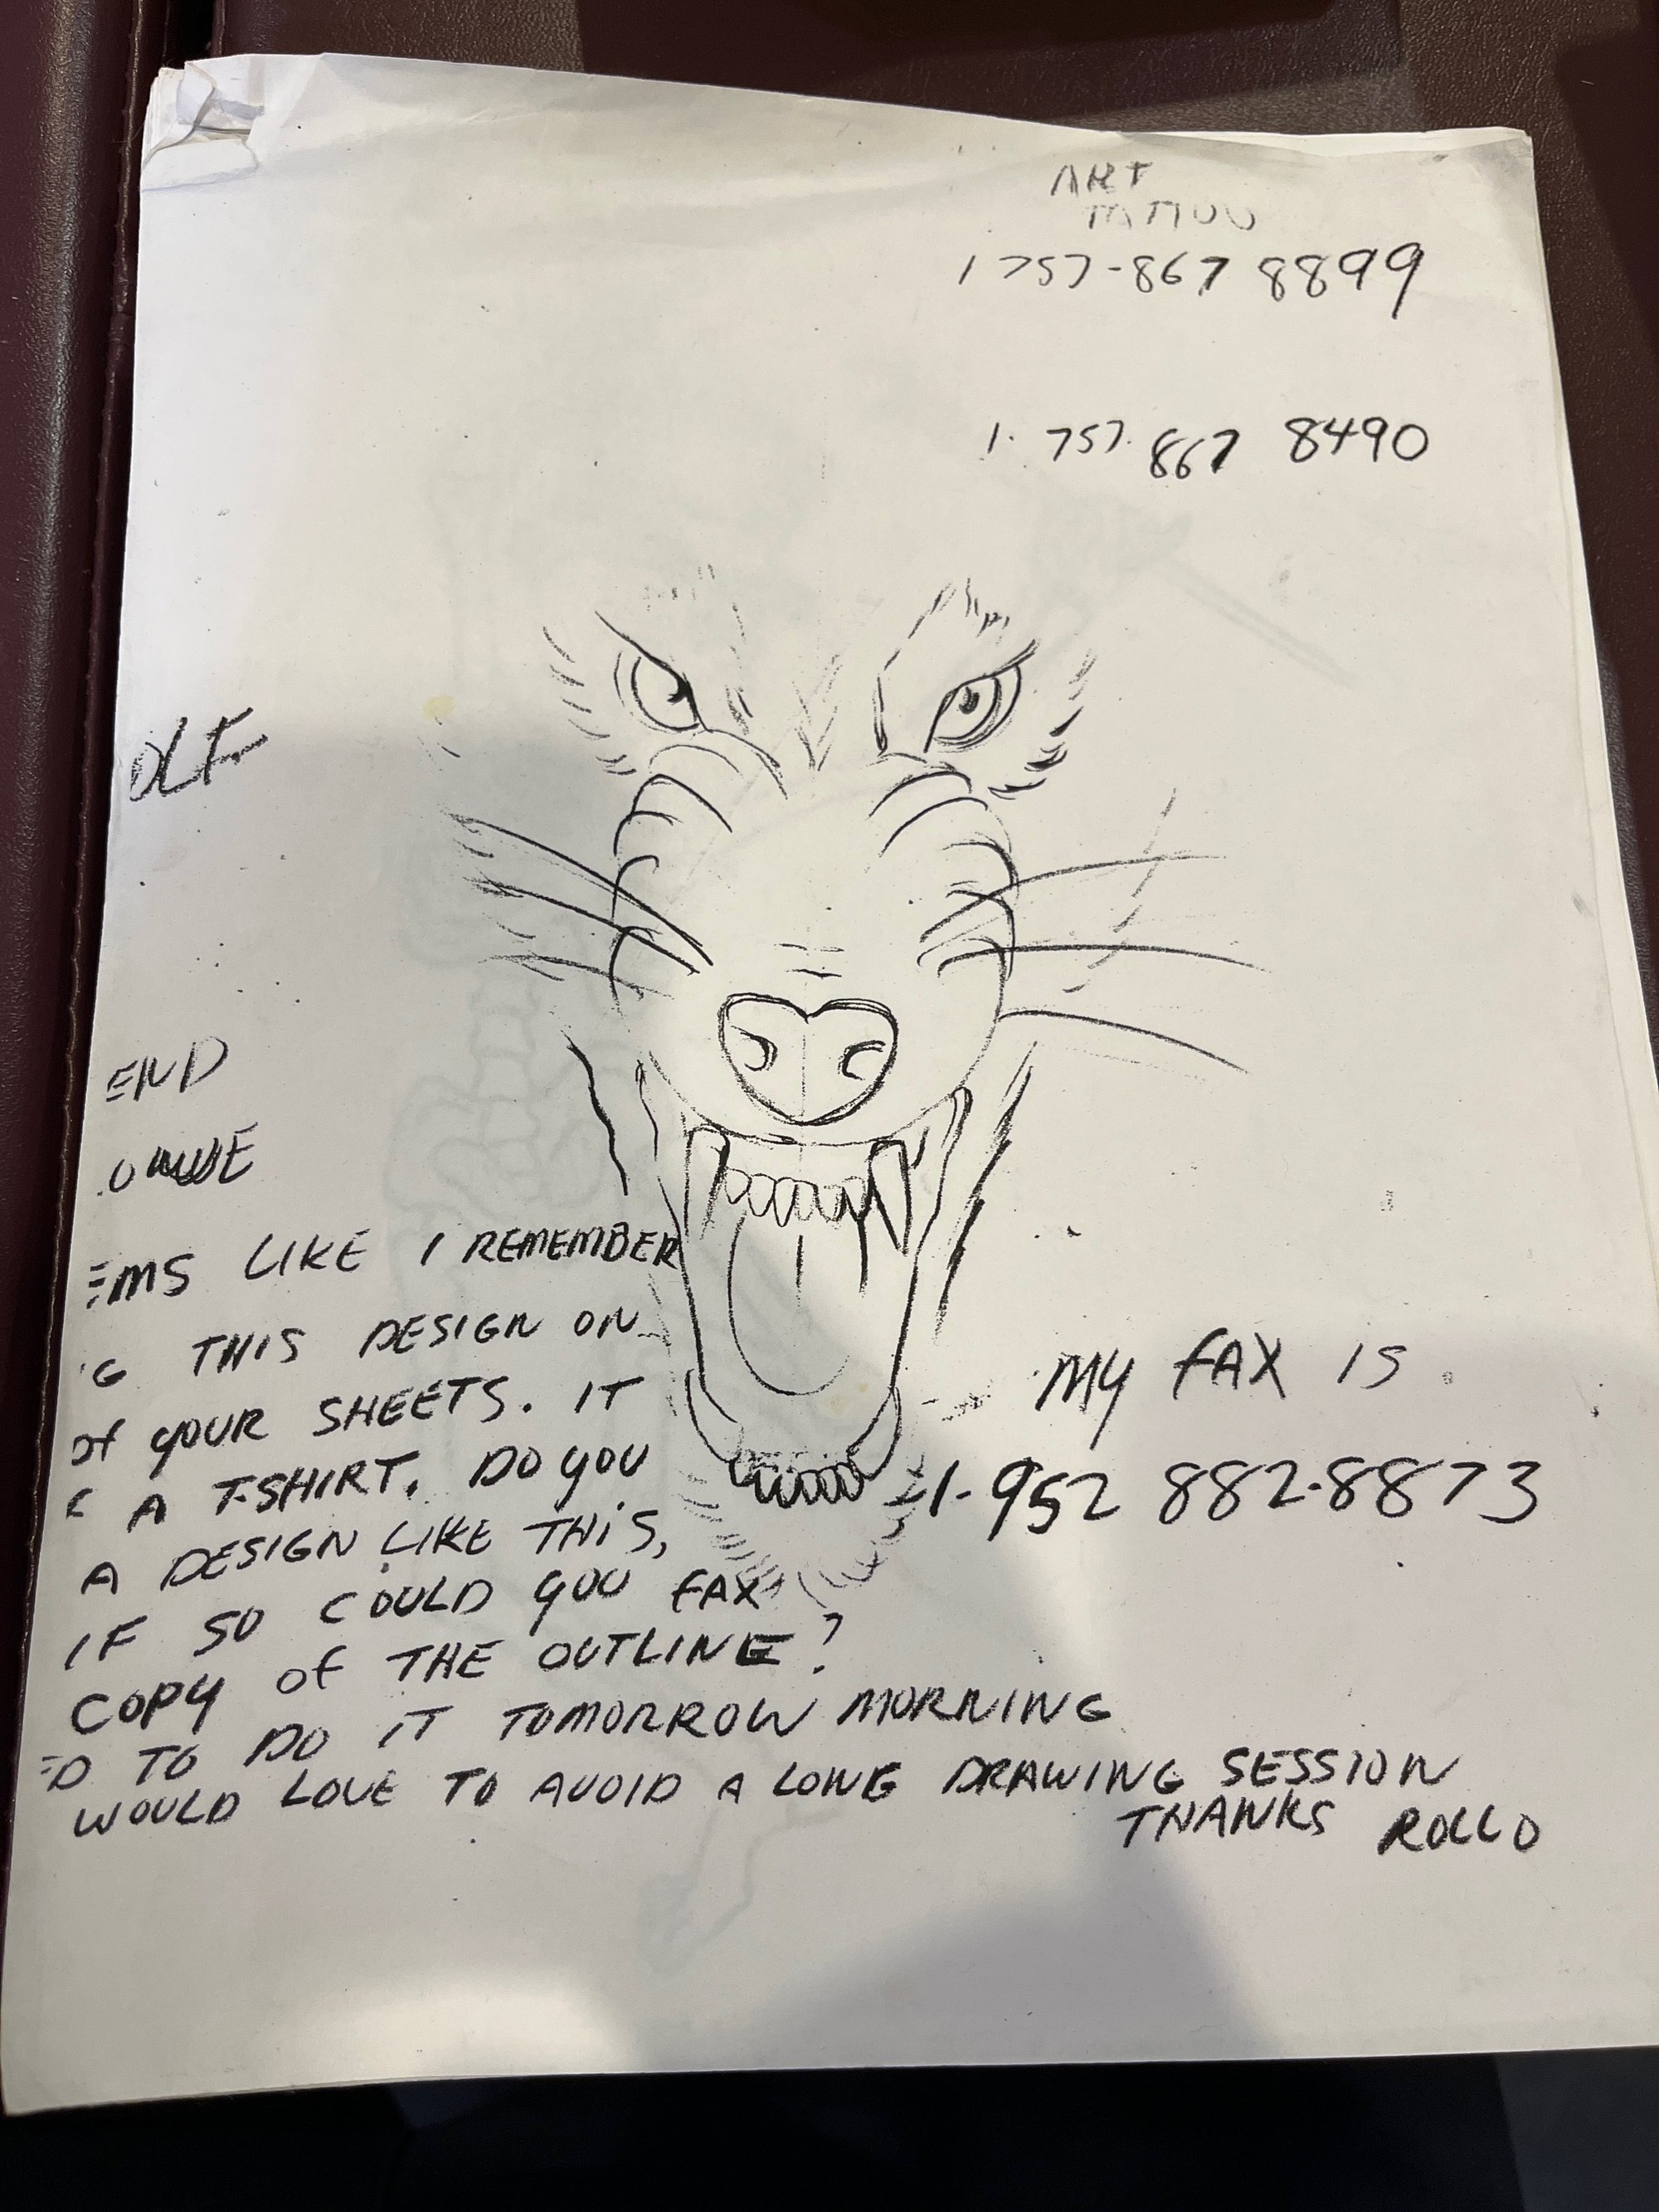 ART
TATTOO
1 757-867 8899
1. 757. 867 8490
OLF
END
EMS LIKE I REMEMBER
G THIS DESIGN ON
Of YOUR SHEETS. IT
A T-SHIRT. DO YOU
A DESIGN LIKE THIS,
IF SO COULD YOU FAX
COPY Of THE OUTLINE?
ED TO DO IT TOMORROW MORNING
WOULD LOVE TO AVOID A LONG DRAWING SESSION
THANKS ROLLO
MY FAX IS
1-952 882-8873